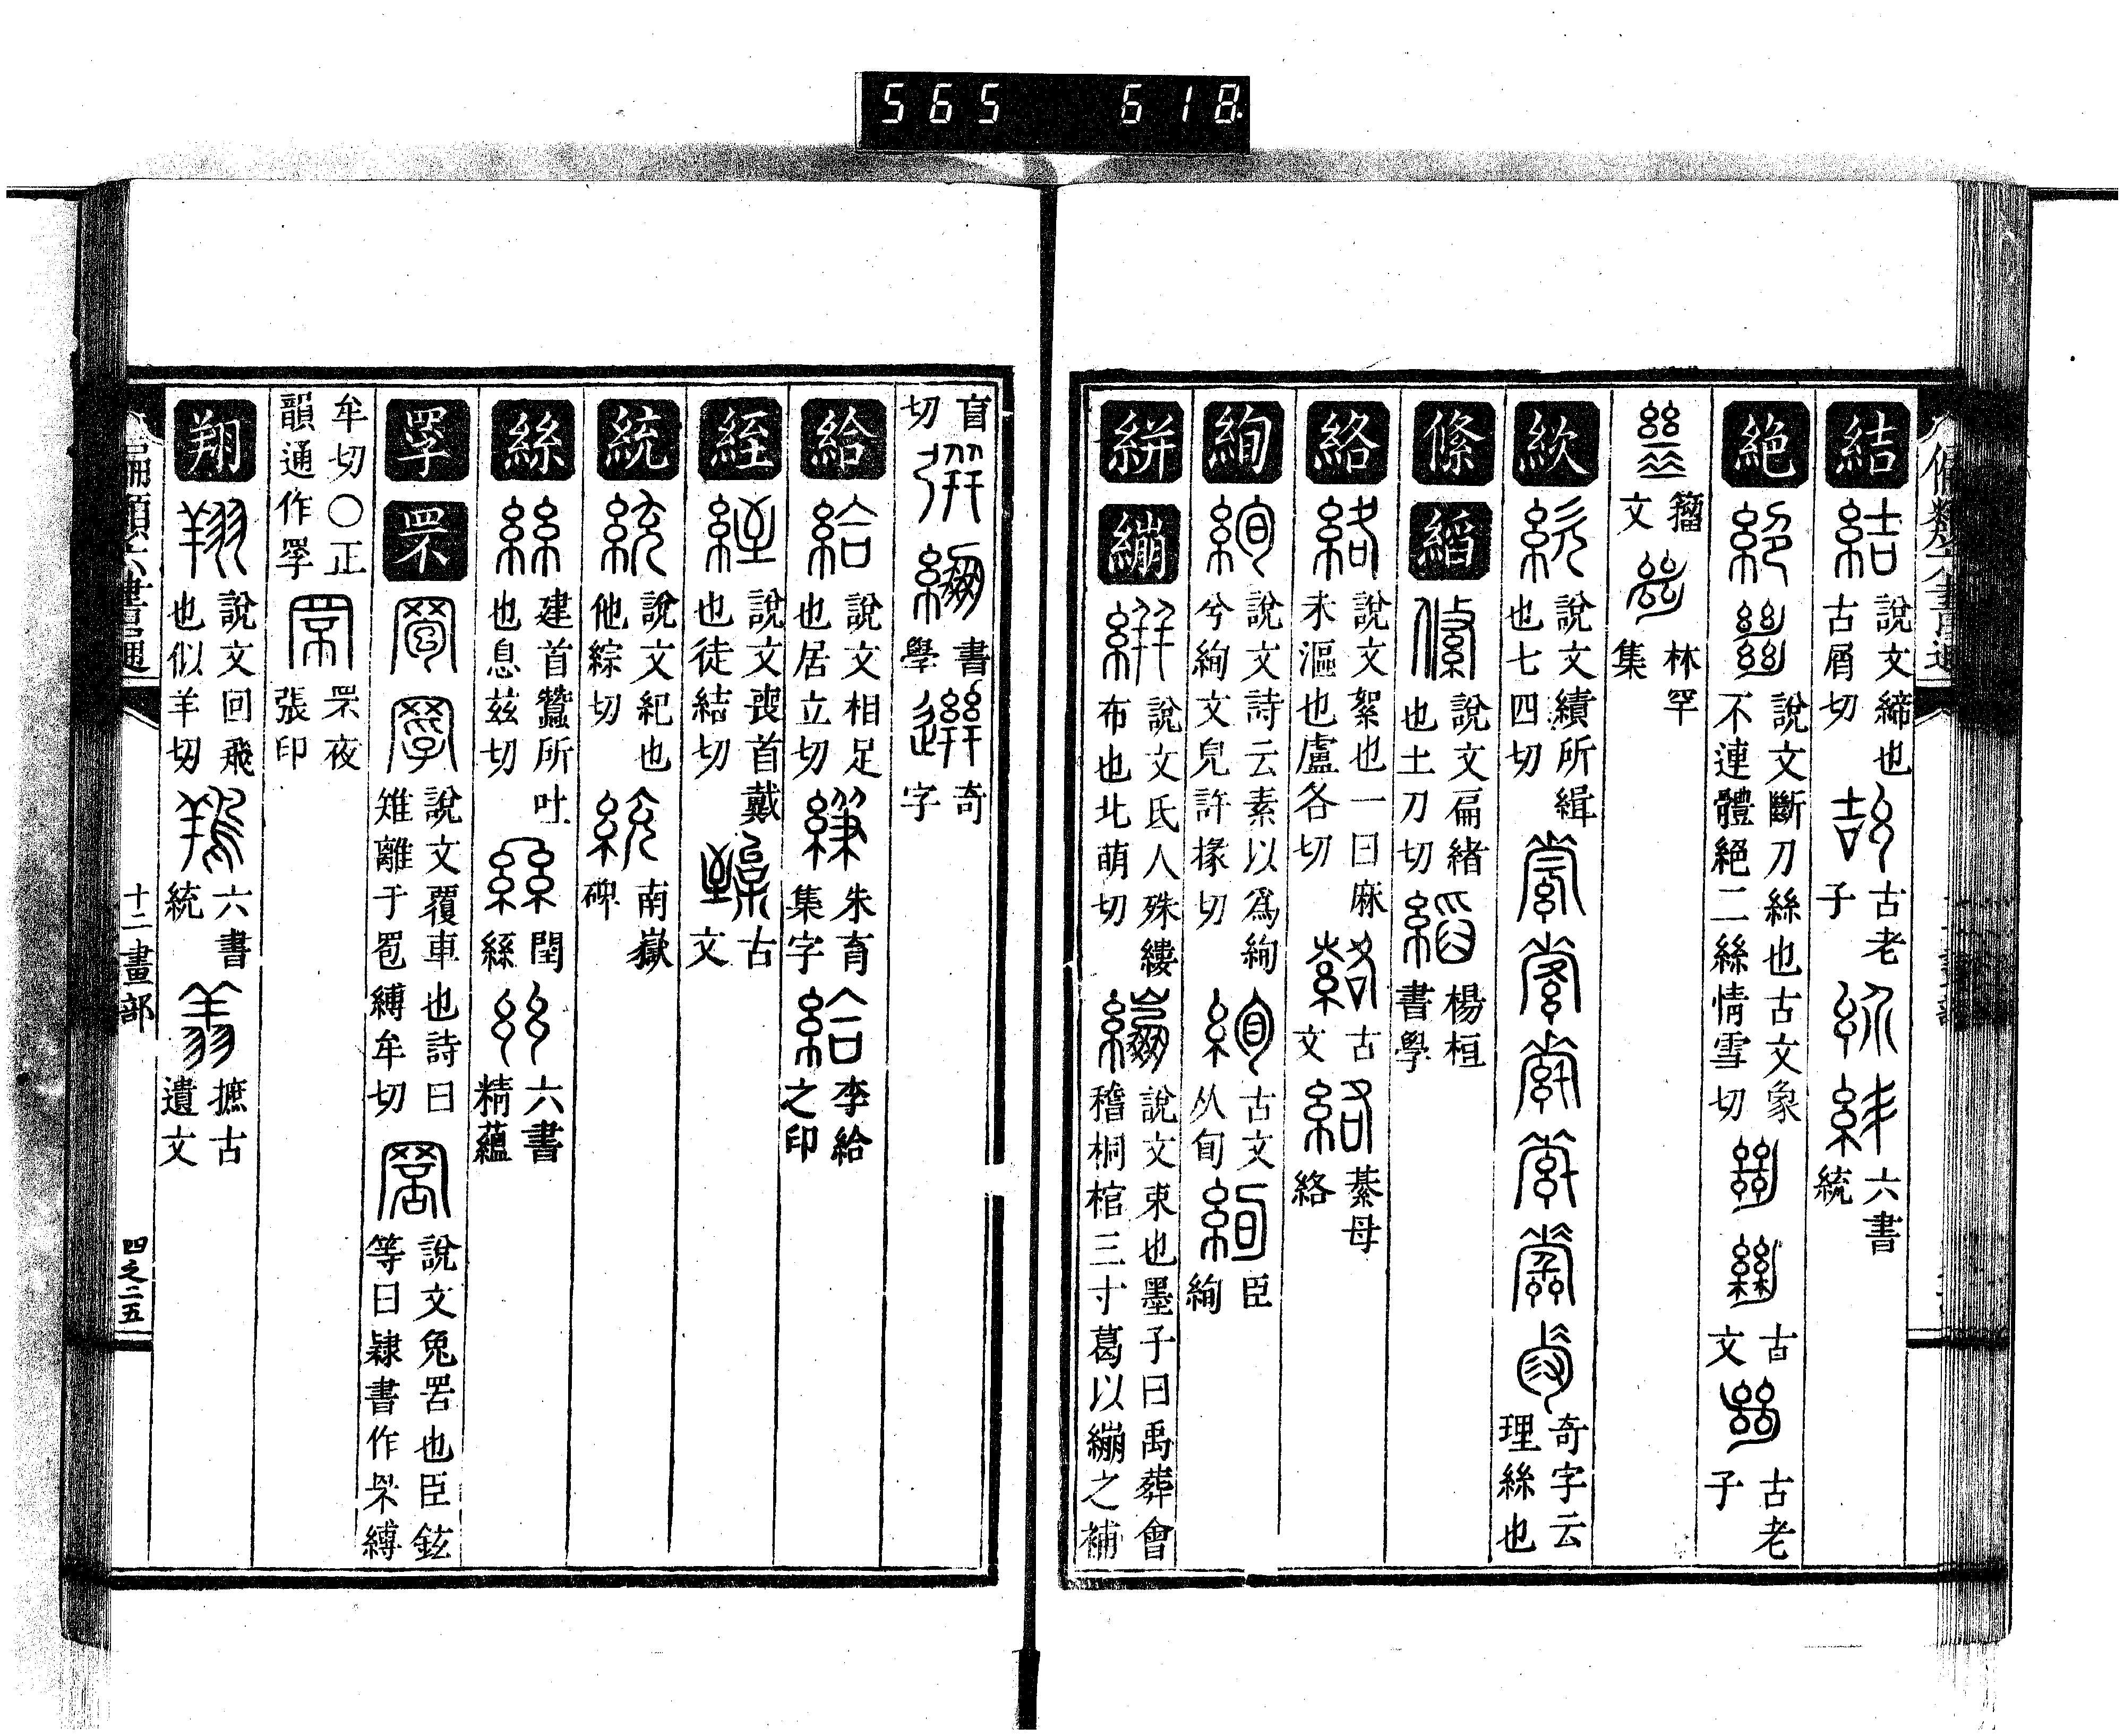 565 618
結 說文締也古屑切 古老子 六書統
絕 說文斷刀絲也古文象不連體絕二絲情雪切 古文 古老子
籀文 林罕集
紋 說文績所緝也七四切 奇字云理絲也
絛 縚 說文扁緒也土刀切 楊桓書學
絡 說文絮也一曰麻未漚也盧各切 古文 綦母絡
絢 說文詩云素以爲絢兮絢文皃許掾切 古文从旬 臣絢
絣 繃 說文氐人殊縷布也北萌切 說文束也墨子曰禹葬會稽桐棺三寸葛以繃之補
盲切 書學 奇字
給 說文相足也居立切 朱育集字 李給之印
絰 說文喪首戴也徒結切 古文
統 說文紀也他綜切 南嶽碑
絲 建首蠶所吐也息玆切 閏絲 六書精蘊
罦 罘 說文覆車也詩曰雉離于罦縛牟切 說文兔罟也臣鉉等曰隸書作罘縛
牟切〇正韻通作罦 罘夜張印
翔 說文回飛也似羊切 六書統 摭古遺文
十二畫部
四之二五